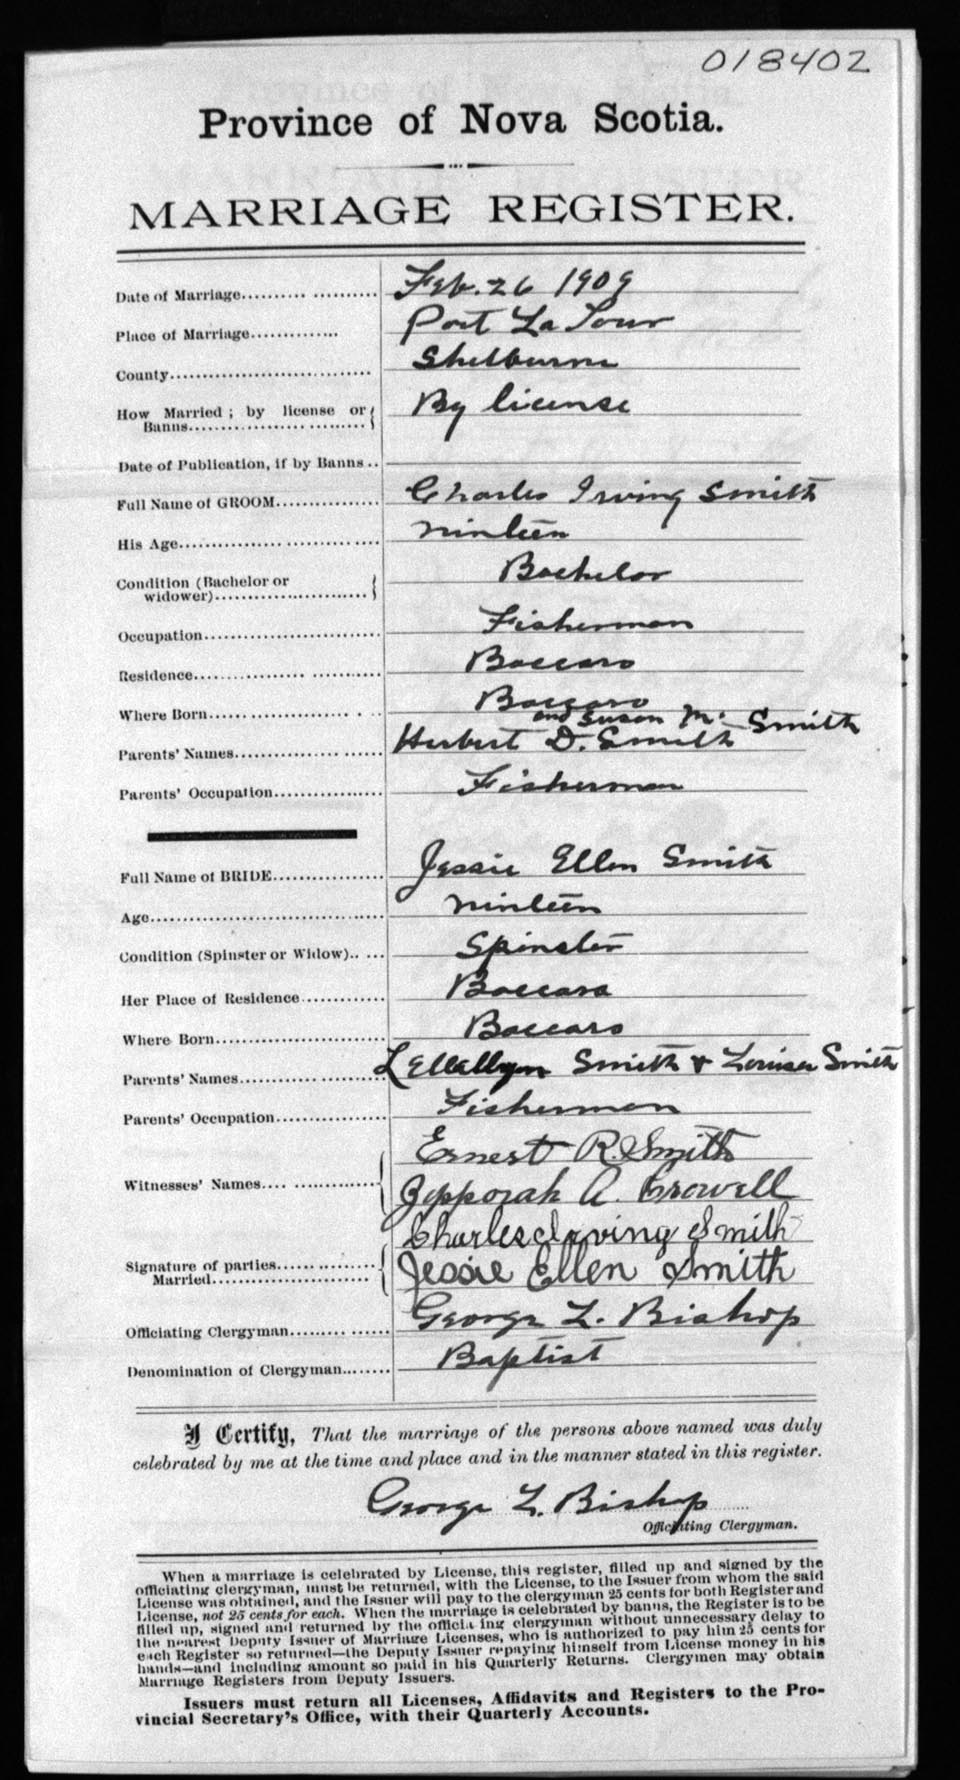 018402
Province of Nova Scotia.
MARRIAGE REGISTER.
Date of Marriage.......... Feb. 26 1909
Place of Marriage............. Port La Tour
County.............................. Shelburne
How Married ; by license or By license
Banns..........................
Date of Publication, if by Banns ..
Full Name of GROOM............... Charles Irving Smith
His Age.............................. ninteen
Condition (Bachelor or Bachelor
widower)........................
Occupation.......................... Fisherman
Residence............................ Baccaro
Where Born.......................... Baccaro
and Susan M. Smith
Parents' Names...................... Herbert D. Smith
Parents' Occupation................ Fisherman
Full Name of BRIDE................ Jessie Ellen Smith
Age.................................. ninteen
Condition (Spinster or Widow)..... Spinster
Her Place of Residence............. Baccara
Where Born.......................... Baccaro
Parents' Names...................... Smith & Louisa Smith
Parents' Occupation................ Fisherman
Ernest R. Smith
Witnesses' Names.................. Zepporah A. Crowell
Charles Irving Smith
Signature of parties............... Jessie Ellen Smith
Married.......................
Officiating Clergyman.............. George L. Bishop
Denomination of Clergyman........ Baptist
I Certify, That the marriage of the persons above named was duly
celebrated by me at the time and place and in the manner stated in this register.
George L. Bishop
Officiating Clergyman.
When a marriage is celebrated by License, this register, filled up and signed by the
officiating clergyman, must be returned, with the License, to the Issuer from whom the said
License was obtained, and the Issuer will pay to the clergyman 25 cents for both Register and
License, not 25 cents for each. When the marriage is celebrated by banns, the Register is to be
filled up, signed and returned by the officia ing clergyman without unnecessary delay to
the nearest Deputy Issuer of Marriage Licenses, who is authorized to pay him 25 cents for
each Register so returned—the Deputy Issuer repaying himself from License money in his
hands—and including amount so paid in his Quarterly Returns. Clergymen may obtain
Marriage Registers from Deputy Issuers.
Issuers must return all Licenses, Affidavits and Registers to the Pro-
vincial Secretary's Office, with their Quarterly Accounts.